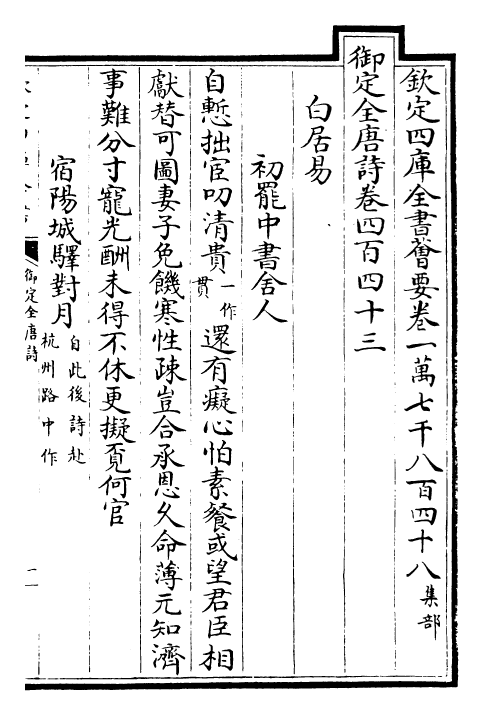 欽定四庫全書薈要卷一萬七千八百四十八 集部
御定全唐詩卷四百四十三
白居易
初罷中書舍人
自慙拙宦叨清貴一作貫還有癡心怕素餐或望君臣相
獻替可圖妻子免饑寒性疎豈合承恩久命薄元知濟
事難分寸寵光酬未得不休更擬覔何官
宿陽城驛對月自此後詩赴杭州路中作
御定全唐詩
一